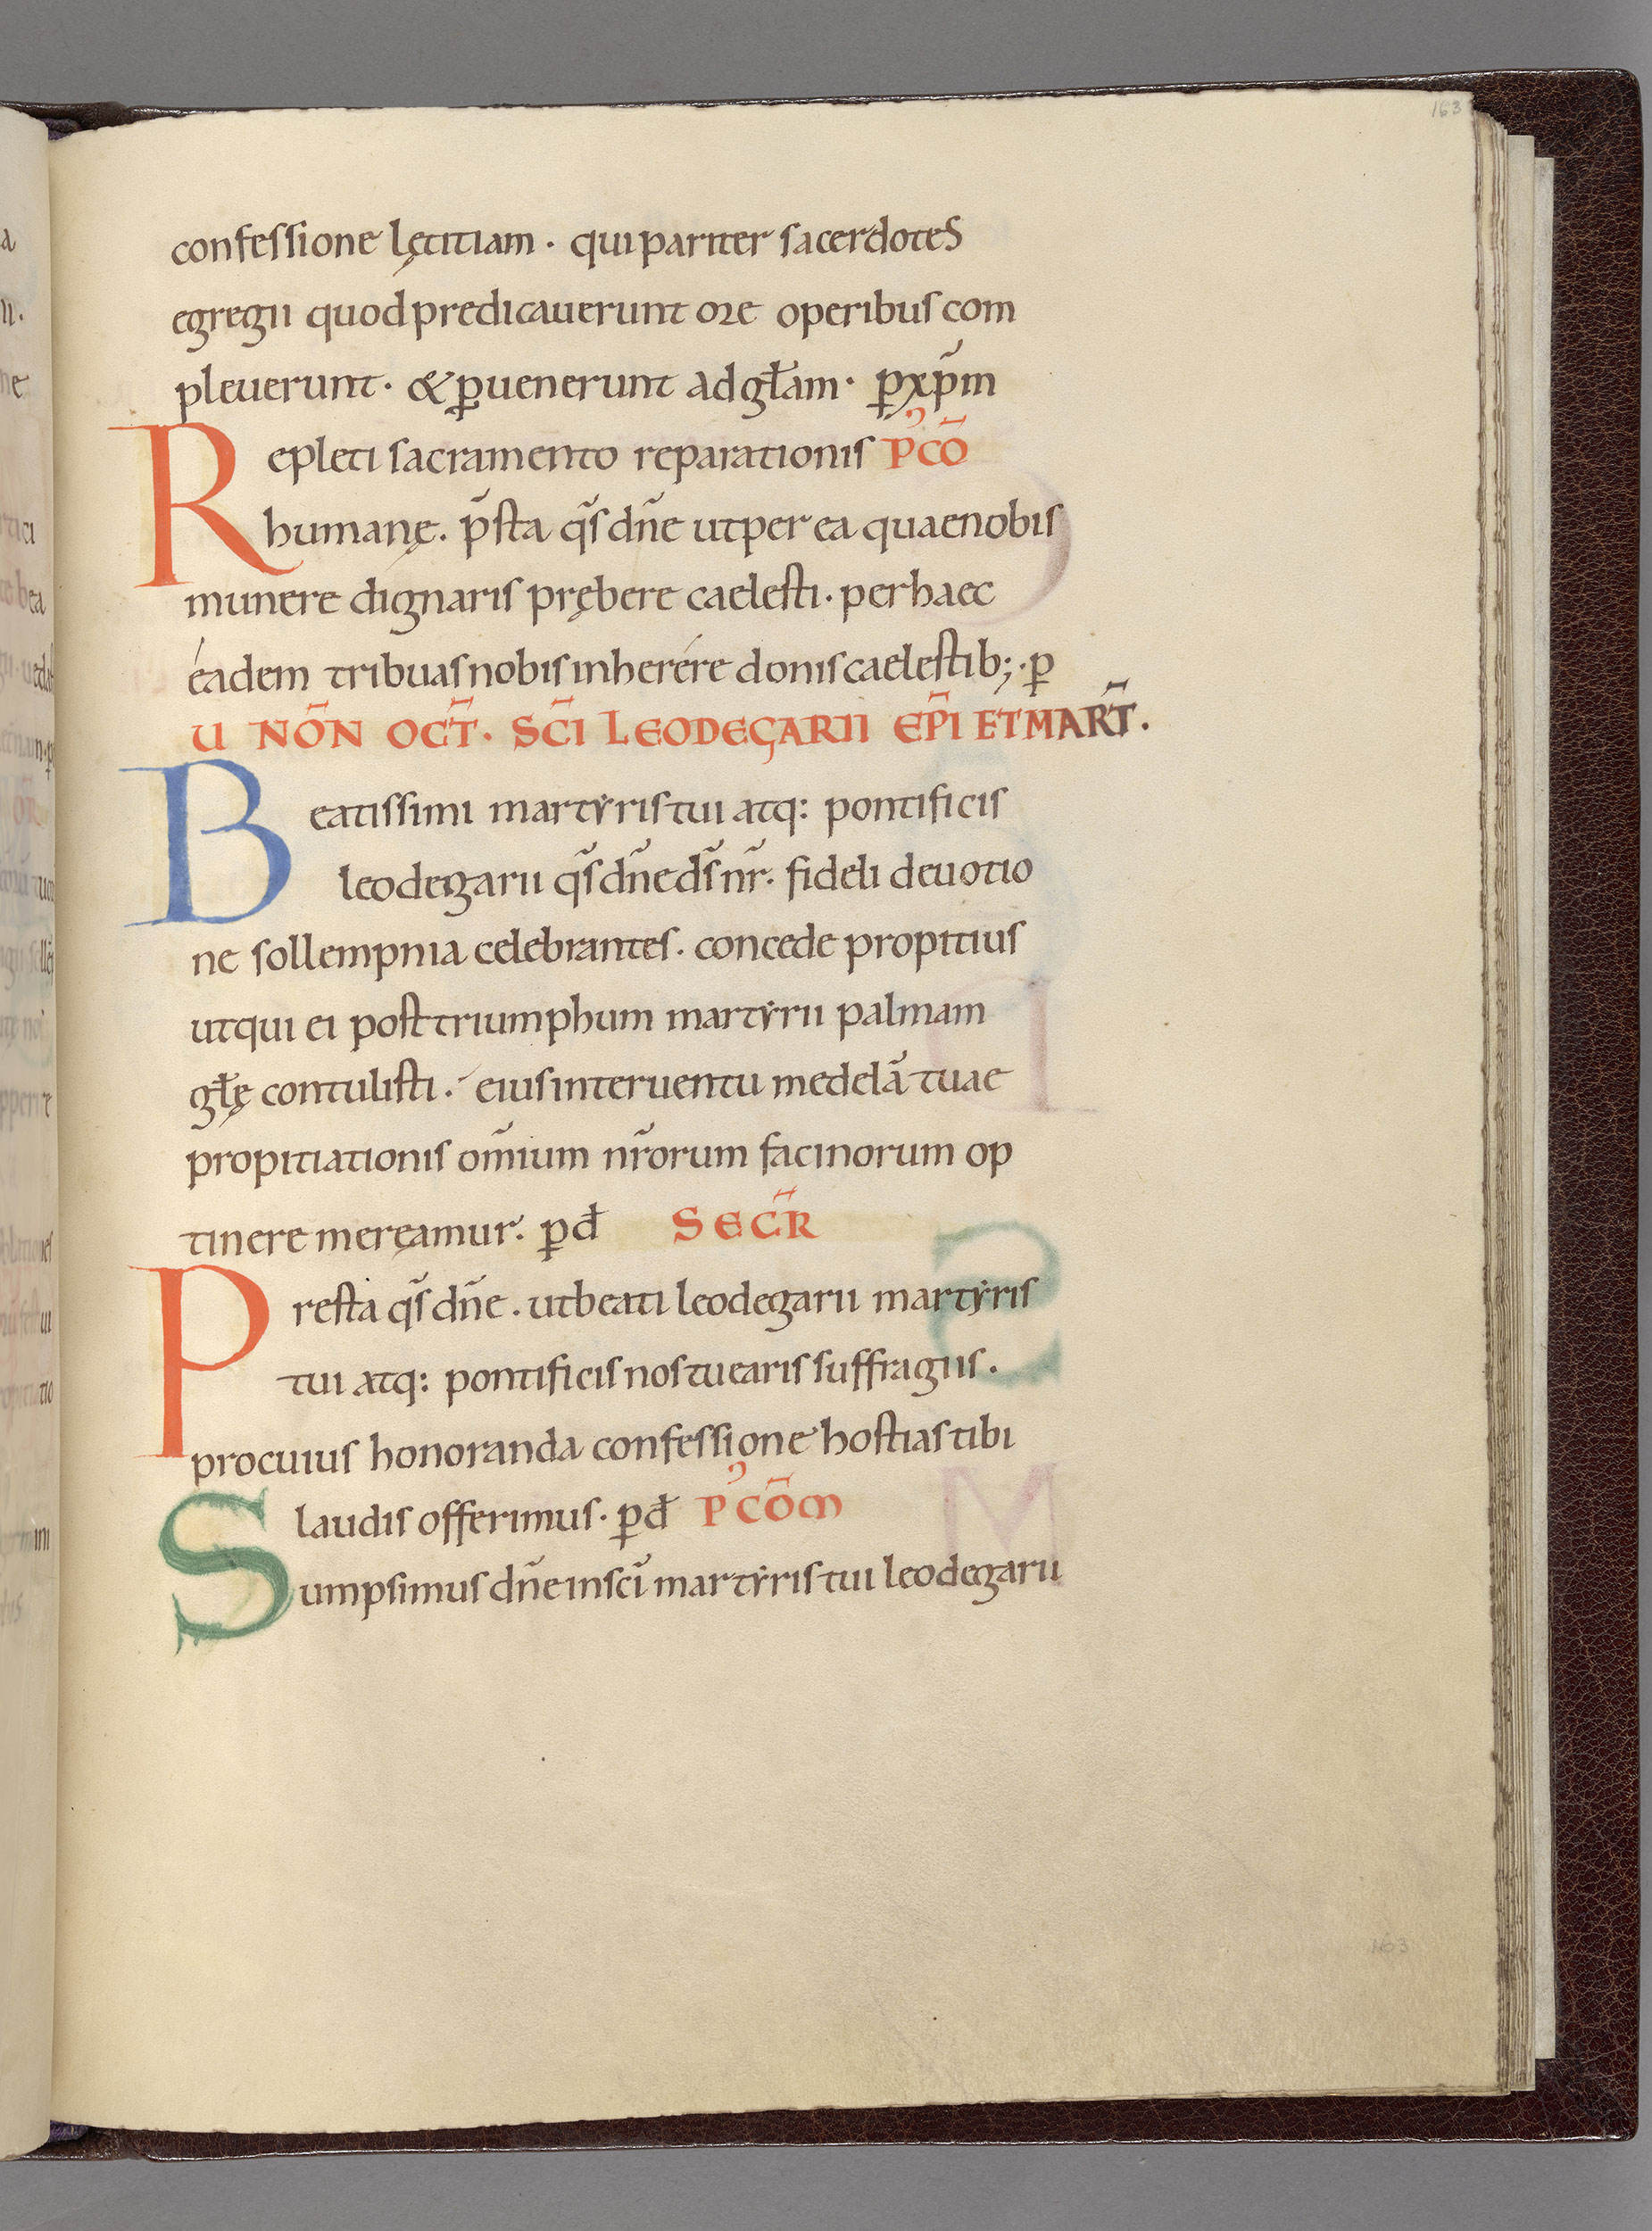 163
confessione lętitiam · qui pariter sacerdotes
egregii quod predicauerunt ore operibus com
pleuerunt · & ꝑuenerunt ad gła̅m · ꝑ xp̅m
Repleti sacramento reparationis P᾽CO̅
humanę. p̅sta q̅s dn̅e ut per ea quae nobis
munere dignaris prębere caelesti · per haec
éadem tribuas nobis inherére donis caelestib; · ꝑ
U NO̅N OCT̅ · SC̅I LEODEGARII EP̅I ET MART̅ .
Beatissimi martẏris tui atq: pontificis
leodegarii q̅s dn̅e ds̅ nr̅. fideli deuotio
ne sollempnia celebrantes · concede propitius
ut qui ei post triumphum martẏrii palmam
głę contulisti · eius interuentu medela̅ tuae
propitiationis om̅ium nr̅orum facinorum op
tinere meręamur. ꝑ đ SECR̅
Presta q̅s dn̅e . ut beati leodegarii martẏris
tui atq: pontificis nos tuearis suffragiis .
pro cuius honoranda confessione hostias tibi
laudis offerimus · ꝑ đ P᾽CO̅M
Sumpsimus dn̅e in sci̅ martẏris tui leodegarii
163